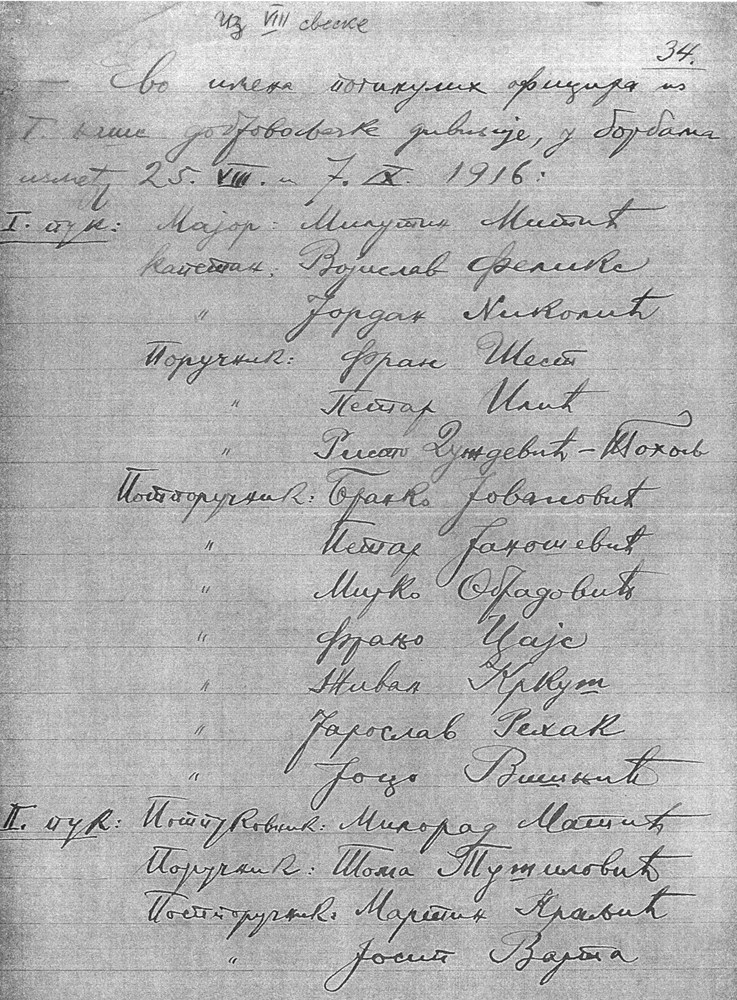 Из VIII свеске
34.
— Ево имена погинулих официра из
I. наше добровољачке дивизије, у борбама
између 25. VIII. и 7. IX. 1916:
I. пук: Мајор: Милутин Матић
Капетан: Војислав Феликс
" Јордан Николић
Поручник: Фран Шест
" Петар Илић
" Ристо Зужђевић – Тохољ
Потпоручник: Бранко Јовановић
" Петар Јаношевић
" Мирко Обрадовић
" Фрањо Цајс
" Живан Кркут
" Јарослав Рехак
" Јоцо Вишњић
II. пук: Потпуковник: Милорад Матић
Поручник: Тома Тутиловић
Потпоручник: Мартин Краљић
" Јосип Варта